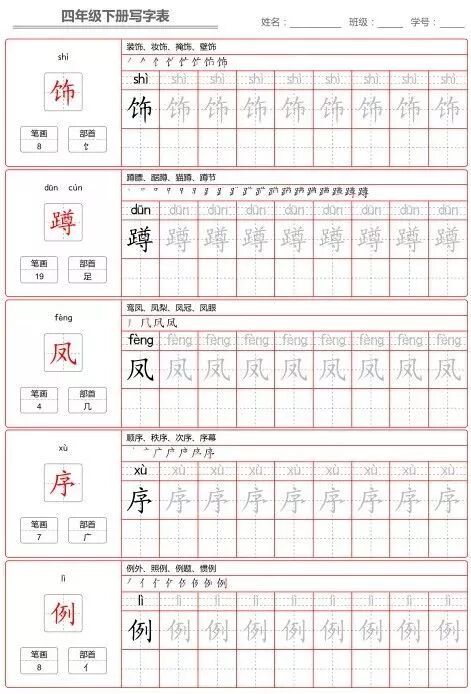 四年级下册写字表 姓名：________ 班级：_____ 学号：_____
shì
饰
笔画 部首
8 饣
装饰、妆饰、掩饰、壁饰
shì shì shì shì shì shì shì shì
饰 饰 饰 饰 饰 饰 饰 饰
dūn cún
蹲
笔画 部首
19 足
蹲膘、踞蹲、猫蹲、蹲节
dūn dūn dūn dūn dūn dūn dūn dūn
蹲 蹲 蹲 蹲 蹲 蹲 蹲 蹲
fèng
凤
笔画 部首
4 几
鸾凤、凤梨、凤冠、凤眼
fèng fèng fèng fèng fèng fèng fèng fèng
凤 凤 凤 凤 凤 凤 凤 凤
xù
序
笔画 部首
7 广
顺序、秩序、次序、序幕
xù xù xù xù xù xù xù xù
序 序 序 序 序 序 序 序
lì
例
笔画 部首
8 亻
例外、照例、例题、惯例
lì lì lì lì lì lì lì lì
例 例 例 例 例 例 例 例